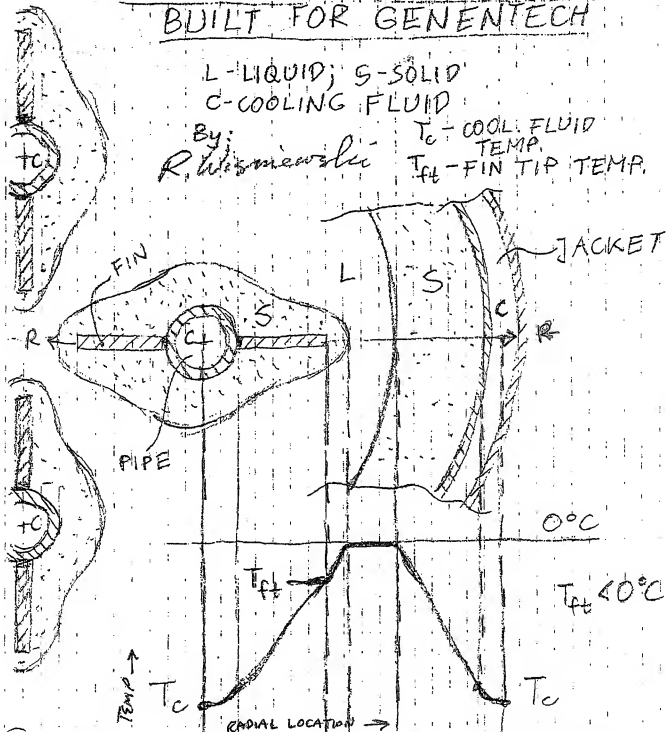 BUILT FOR GENENTECH
L-LIQUID; S-SOLID
C-COOLING FLUID
By:
R. Wisniewski
Tc - COOL. FLUID
TEMP.
Tft - FIN TIP TEMP.
C
JACKET
FIN
L
S
C
S
R
C
R
PIPE
C
0°C
Tft
Tft < 0°C
Tc
Tc
TEMP →
RADIAL LOCATION →